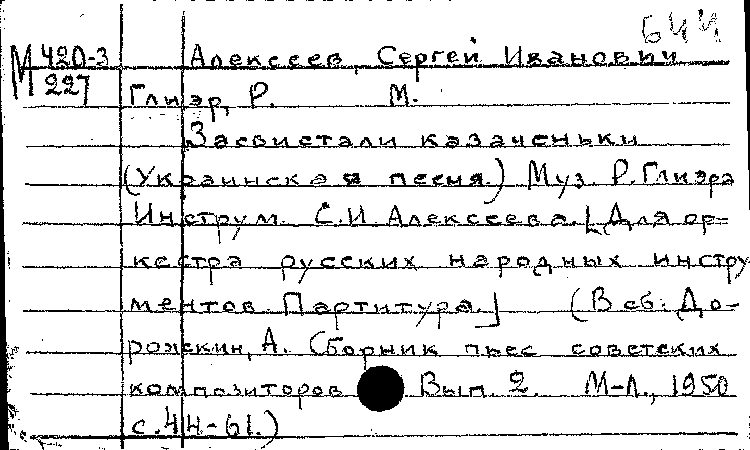 644
М 420-3 Алексеев, Сергей Иванович
227
Глиэр, Р. М.
Засвистали казаченьки
(Украинская песня.) Муз. Р. Глиэра
Инструм. С. И. Алексеева. [Для ор=
кестра русских народных инстру
ментов. Партитура.] (В сб: До-
рожкин, А. Сборник пьес советских
композиторов Вып. 2. М-Л., 1950
с. 44-61.)